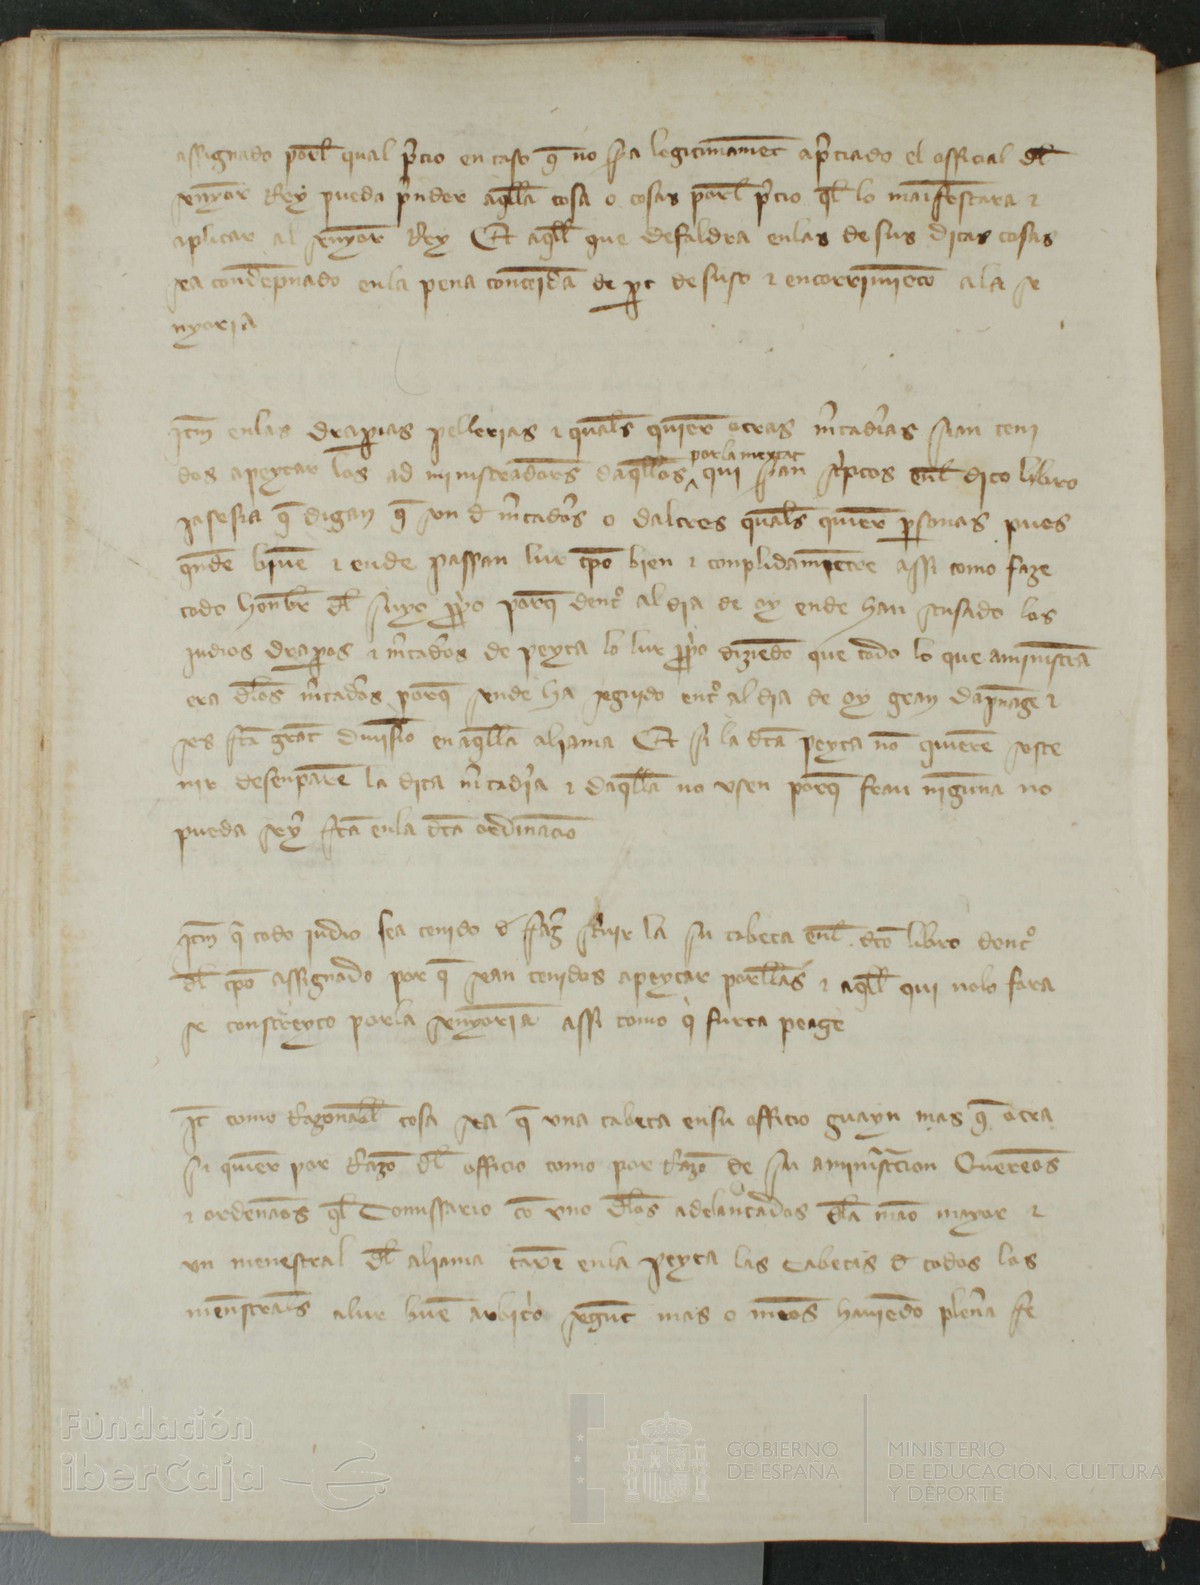 assignado porel qual p̃cio en caso q̃ no sia legitimament ap̃ciado el official dl
senyor Rey pueda p̃nder aqlla cosa o cosas porel p̃cio ql lo manifestara &
aplicar al senyor Rey Et aqll que defaldra en las de sus ditas cosas
sea condepnado en la pena contenida de part de suso & encorrimiento a la se
nyoria
Itm̃ en las draperias pellerias & quals quier otras m̃caderias sian teni
dos a peytar los administradors daqllos por la meytat qui sian sc̃ptos enl dito libro
jasesia q̃ digan q̃ son d m̃cadors o daltres quals quier p̃sonas pues
q̃nde biuẽ & ende passan lur tp̃o bien & conplidamentre assi como faze
todo honbrẽ dl suyo pp̃o porq̃ dentº al dia de oy ende han scusado los
judios draperos & m̃caders de peyta lo lur pp̃o diziẽdo que todo lo que aministrã
era dlos m̃caders porq̃ sende ha seguido entº al dia de oy gran dapnage &
ses fc̃a grãt diuisiõ en aqlla aljama Et si la dc̃ta peyta no quierẽ soste
nir desenparẽ la dita m̃caderia & daqlla no vsen porq̃ frau ninguna no
pueda seyer fc̃a en la dc̃ta ordinaciõ
Itm̃ q̃ todo judio sea tenido d faz̃ scriuir la su cabeca enl dc̃to libro dentº
dl tp̃o assignado por q̃ sean tenidos a peytar por ellas & aqll qui nolo fara
se constreyto por la senyoria assi como q̃ furta peage
It̃ como Razonabl cosa sea q̃ vna cabeca en su officio guayn mas q̃ otra
si quier por Razõ dl officio como por Razõ de su aministracion Queremos
& ordenamos ql Comissario cõ vno dlos adelantados dla mão mayor &
vn menestral dl aljama taxẽ en la peyta las cabecas d todos los
menestrals a lur buẽ arbitrio segunt mas o menos hauiẽdo plena fe
Fundación
iberCaja
GOBIERNO
DE ESPAÑA
MINISTERIO
DE EDUCACIÓN, CULTURA
Y DEPORTE